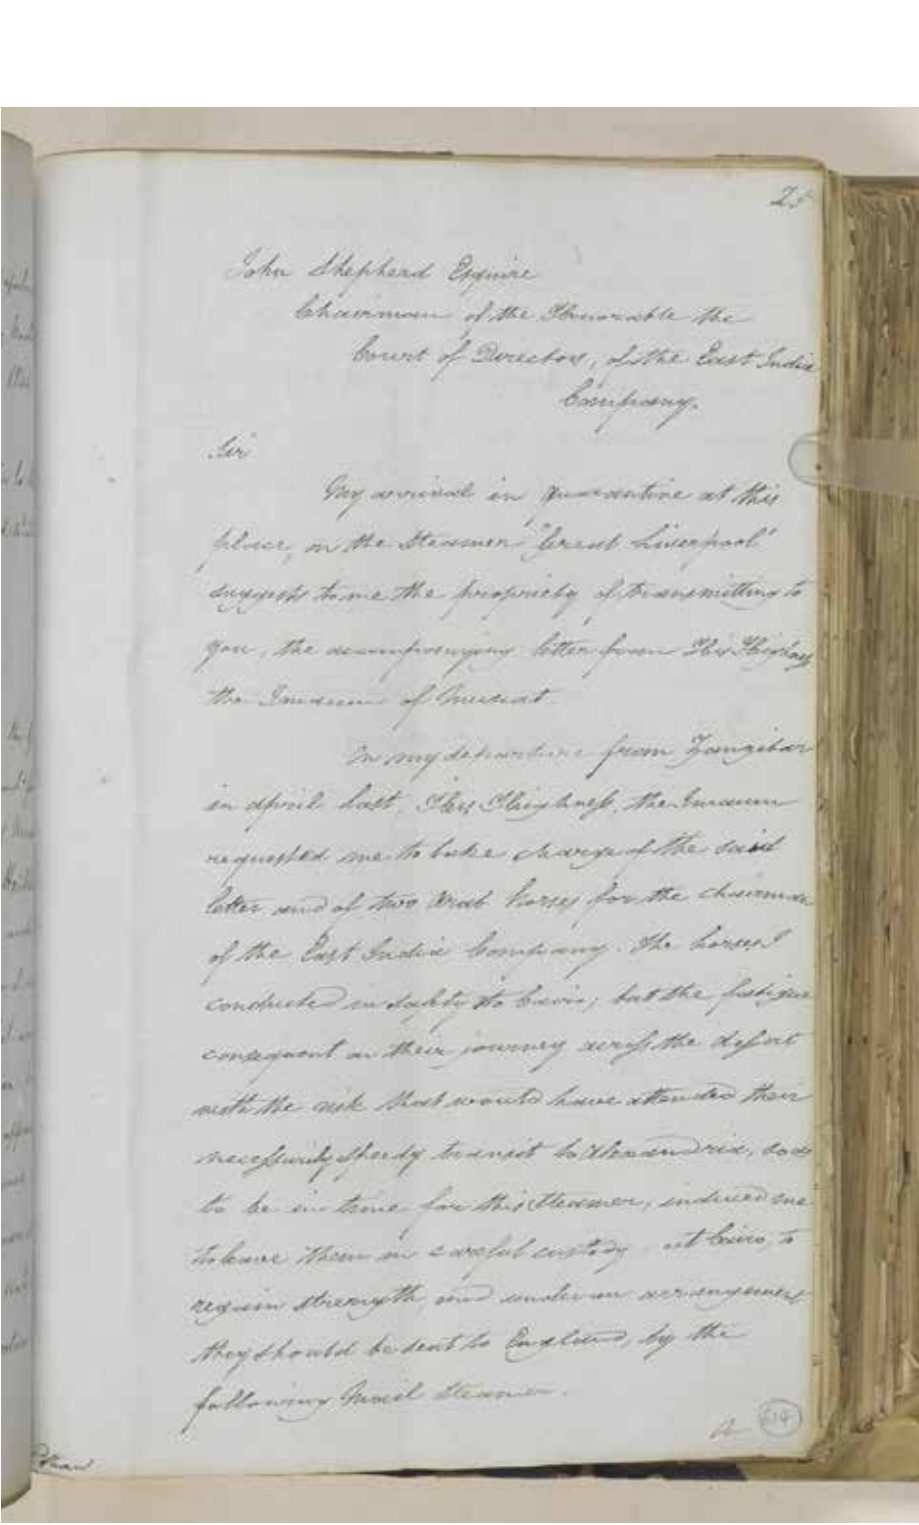 25
John Shepherd Esquire
Chairman of the Honorable the
Court of Directors, of the East India
Company.
Sir
My arrival in quarantine at this
place, in the Steamer "Great Liverpool"
suggests to me the propriety of transmitting to
you, the accompanying letter from His Highness
the Imaum of Muscat.
On my departure from Zanzibar
in April last, His Highness, the Imaum
requested me to take charge of the said
letter and of two Arab horses for the Chairman
of the East India Company. The horses I
conducted in safety to Cairo; but the fatigue
consequent on their journey across the desert
with the risk that would have attended their
necessarily speedy transit to Alexandria, so as
to be in time for this Steamer, induced me
to leave them in careful custody at Cairo, to
regain strength, and under an arrangement
they should be sent to England, by the
following Mail Steamer.